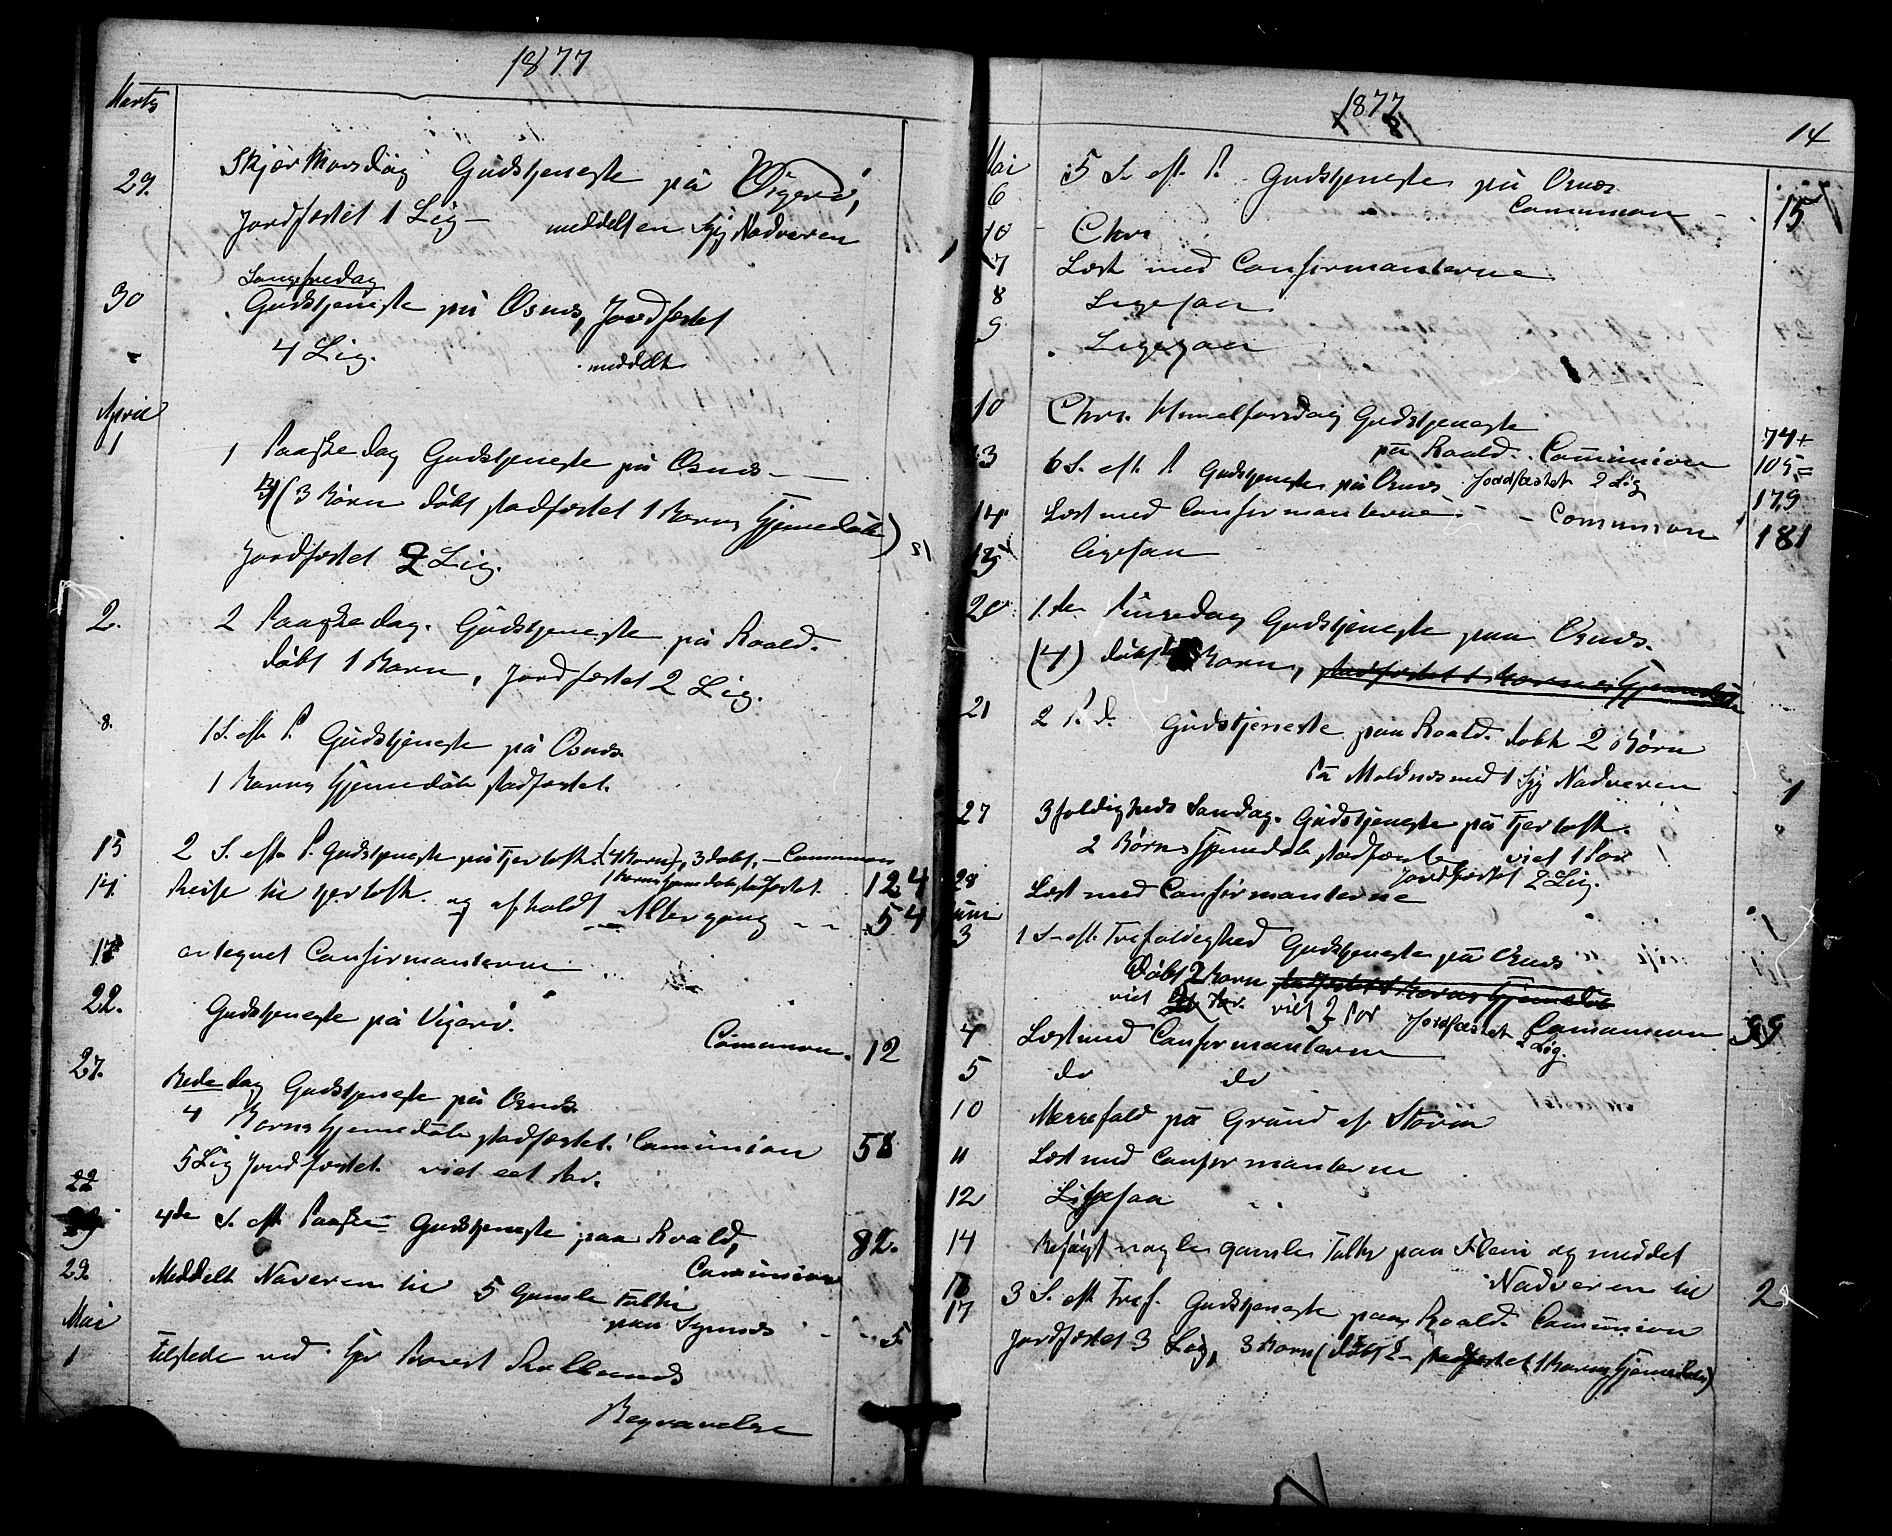 1877
Marts
29. Skjær Thorsdag Gudstjeneste på Vigerö,
Jordfæstet 1 Lig — meddelt en Syg Nadveren 1
Langefredag
30 Gudstjeneste på Osnes, Jordfæstet
4 Lig. meddelt
April
1 1 Paaske dag Gudstjeneste på Osnes —
(3 Börn döbt stadfæstet 1 Barns Hjemmedåb)
Jordfæstet 2 Lig.
2. 2 Paaske dag. Gudstjeneste på Roald.
döbt 1 Barn, Jordfæstet 2 Lig.
8. 1 S. eft. P. Gudstjeneste på Osnes.
1 Barns Hjemmedåb stadfæstet.
15 2 S. eft. P. Gudstjeneste på Fjertoft. (4 Barn), 3 döbt, — Communion 124
1 Barns Hjemmedåb stadfæstet.
14. Reise til Fjertoft. og afholdt Altergang - - 54
17 antegnet Confirmanterne
22. Gudstjeneste på Vigerö.
Communion. 12
27. Bededag Gudstjeneste på Osnes.
4 Barns Hjemmedåb stadfæstet. Communion 58
5 Lig Jordfæstet viet eet Par.
22
29 4de S. eft. Paaske Gudstjeneste paa Roald, 82.
Communion
29. Meddelt Naveren til 5 Gamle Folk
paa Synnes - - 5
Mai
1 tilstede ved Begravelse
1877
14
Mai
6 5 S. eft. P. Gudstjeneste på Osnes
Communion - 15
10 Chrs
7 Læst med Confirmanterne
8 Ligesaa
9 Ligesaa 1
10 Chrs. Himelfarsdag Gudstjeneste
på Roald. Communion 74+
13 6 S. eft. P. Gudstjeneste på Osnes Jordfæstet 2 Lig 105=
179
14 Læst med Confirmanterne - - Communion 181
15 ligesaa
20 1.ste Pinsedag Gudstjeneste paa Osnes.
(4) döbt Barn, stadfæstet 1 Barns Hjemmedåb
21 2 P. d. Gudstjeneste paa Roald. döbt 2 Börn
På Moldnes med 1 Syg Nadveren 1
27 3foldigheds Sondag. Gudstjeneste på Fjertoft.
2 Börns Hjemedåb stadfæstet viet 1 Par
Jordfæstet 2 Lig.
28 Læst med Confirmanterne
Juni
3 1 S. eft. Trefoldighed Gudstjeneste på Osnes
Döbt 2 Barn stadfæstet 1 Barns Hjemedåb
viet Par. viet 2 Par Jordfæstet 2 Lig. Communion 99
4 Læst med Confirmanterne
5 do do
10 Messefald på Grund af Storm
11 Læst med Confirmanterne
12 Ligesaa
14 Besøgt nogle gamle Folk paa Flem og meddelt
16 Nadveren til 2
17 3 S. eft. Tref. Gudstjeneste paa Roald. Communion
Jordfæstet 3 Lig, 3 Barn (döbt 2 — stadfæstet 1 Barns Hjemmedåb)